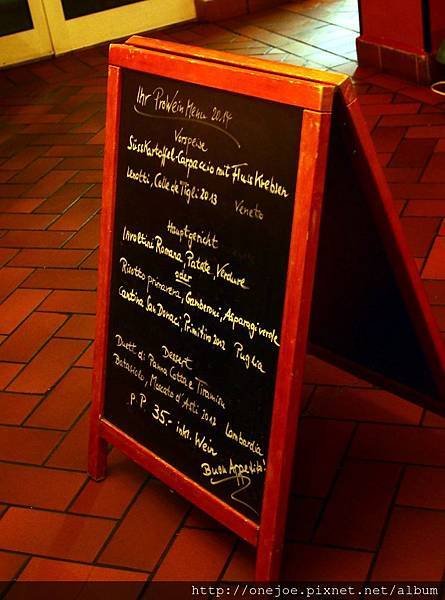 Ihr ProWein Menu 2014
Vorspeise
Süsskartoffel-Carpaccio mit Flusskrebsen
Lenotti, Colle dei Tigli 2013 Veneto
Hauptgericht
Involtini Romana, Patate, Verdure
oder
Risotto primavera, Gamberoni, Asparagi verde
Cantina San Donaci, Primitivo 2012 Puglia
Dessert
Duett di Panna Cotta e Tiramisu
Batasiolo, Moscato d'Asti 2013 Lombardia
p.P. 35.- inkl. Wein
Buon Appetito!
http://onejoe.pixnet.net/album